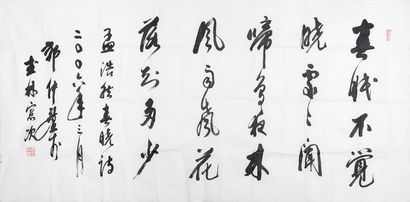 春眠不覺
曉處々聞
啼鳥夜來
風雨聲花
落知多少
孟浩然春曉詩
二〇〇六年三月
林寓次